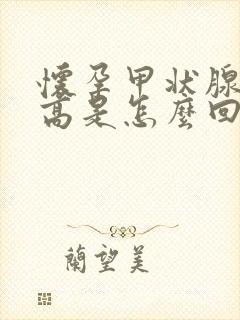 懷孕甲状腺
高是怎麽回
蘭望美